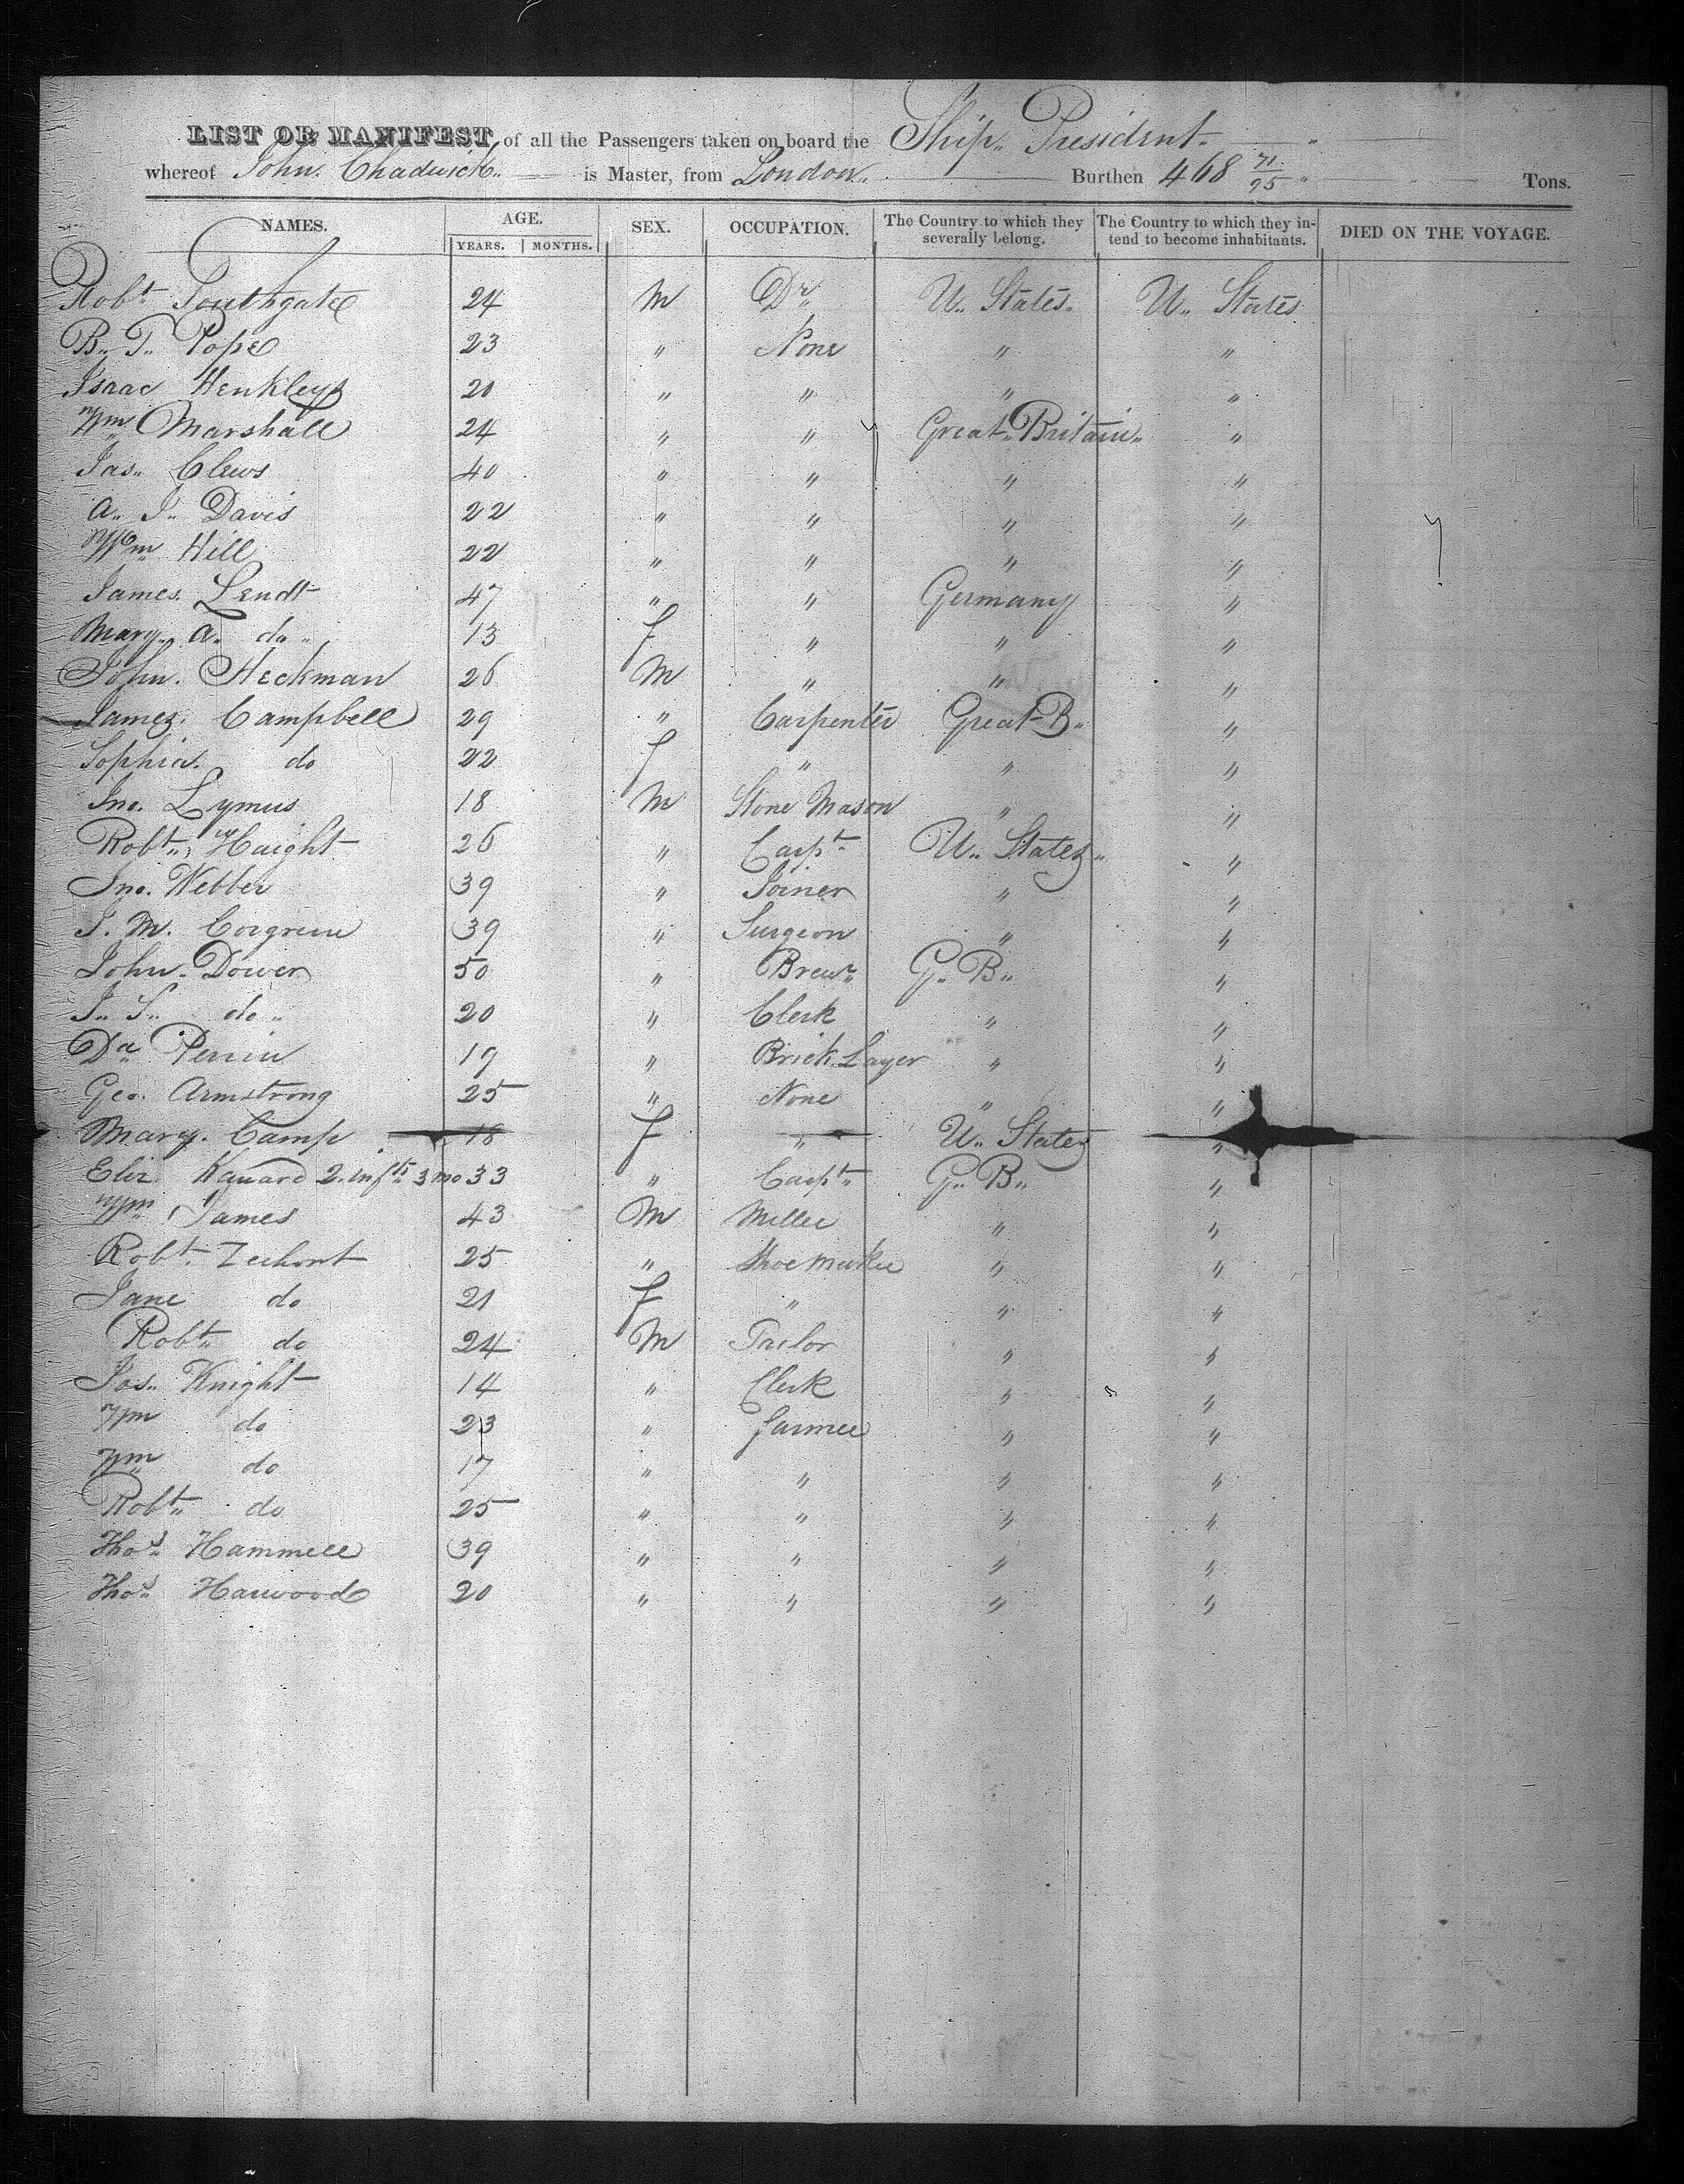 LIST OR MANIFEST of all the Passengers taken on board the Ship President
whereof John Chadwick is Master, from London Burthen 468 71/95 Tons.
NAMES. AGE. YEARS. MONTHS. SEX. OCCUPATION. The Country to which they severally belong. The Country to which they intend to become inhabitants. DIED ON THE VOYAGE.
Robt Southgate 24 M Dr U. States U. States
B. T. Pope 23 " None " "
Isaac Henkleys 20 " " " "
Wm Marshall 24 " " Great Britain "
Jas. Clews 40 " " " "
A. J. Davis 22 " " " "
Wm Hill 22 " " " "
James Lendt 47 " " Germany "
Mary A. do 13 F " " "
John Heckman 26 M " " "
James Campbell 29 " Carpenter Great B. "
Sophia do 22 F " " "
Jno. Lymus 18 M Stone Mason " "
Robt Haight 26 " Carpt U. States "
Jno. Webber 39 " Joiner " "
J. M. 39 " Surgeon " "
John Dower 50 " Brewr G. B. "
J. S. do 20 " Clerk " "
Da Perrin 19 " Brick Layer " "
Geo. Armstrong 25 " None " "
Mary Camp 18 F " U. States "
Eliz 2 infts 3 mo 33 " Carpt G. B. "
Wm James 43 M Miller " "
Robt 25 " Shoe Maker " "
Jane do 21 F " " "
Robt do 24 M Tailor " "
Jos. Knight 14 " Clerk " "
Wm do 23 " Farmer " "
Wm do 17 " " " "
Robt do 25 " " " "
Thos Hammell 39 " " " "
Thos Harwood 20 " " " "